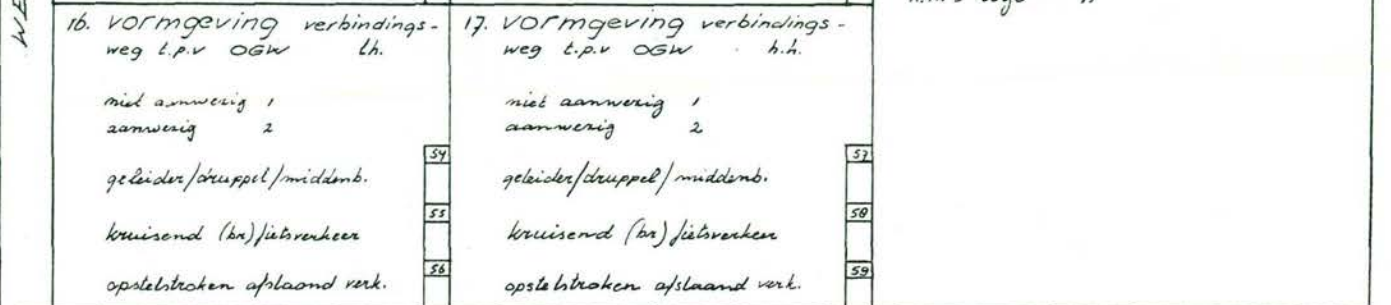 16. vormgeving verbindings-
weg t.p.v OGW l.h.
niet aanwezig 1
aanwezig 2
54
geleider/druppel/middenb.
55
kruisend (br)fietsverkeer
56
opstelstroken afslaand verk.
17. vormgeving verbindings-
weg t.p.v OGW h.h.
niet aanwezig 1
aanwezig 2
57
geleider/druppel/middenb.
58
kruisend (br)fietsverkeer
59
opstelstroken afslaand verk.